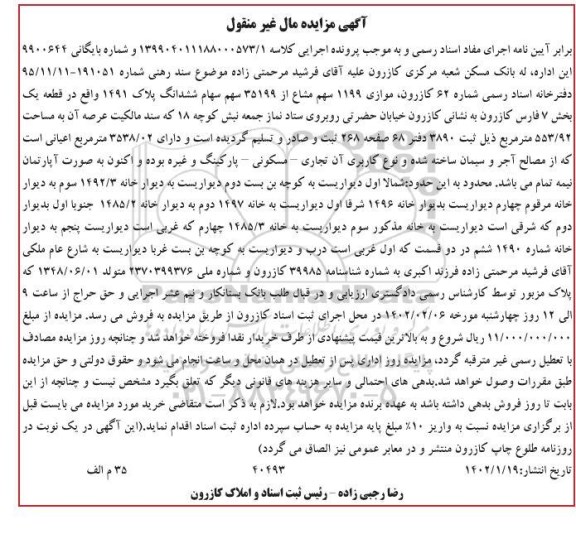 آگهی مزایده مال غیر منقول
برابر آیین نامه اجرای مفاد اسناد رسمی و به موجب پرونده اجرایی کلاسه ۱۳۹۹۰۴۰۱۱۱۸۸۰۰۰۵۷۳/۱ و شماره بایگانی ۹۹۰۰۶۴۴
این اداره، له بانک مسکن شعبه مرکزی کازرون علیه آقای فرشید مرحمتی زاده موضوع سند رهنی شماره ۱۹۱۰۵۱-۹۵/۱۱/۱۱
دفترخانه اسناد رسمی شماره ۶۲ کازرون، موازی ۱۱۹۹ سهم مشاع از ۳۵۱۹۹ سهم سهام ششدانگ پلاک ۱۴۹۱ واقع در قطعه یک
بخش ۷ فارس کازرون به نشانی کازرون خیابان حضرتی روبروی ستاد نماز جمعه نبش کوچه ۱۸ که سند مالکیت عرصه آن به مساحت
۵۵۳/۹۲ مترمربع ذیل ثبت ۳۸۹۰ دفتر ۶۸ صفحه ۲۶۸ ثبت و صادر و تسلیم گردیده است و دارای ۳۵۳۸/۰۲ مترمربع اعیانی است
که از مصالح آجر و سیمان ساخته شده و نوع کاربری آن تجاری – مسکونی – پارکینگ و غیره بوده و اکنون به صورت آپارتمان
نیمه تمام می باشد. محدود به این حدود:شمالا اول دیواریست به کوچه بن بست دوم دیواریست به دیوار خانه ۱۴۹۲/۳ سوم به دیوار
خانه مرقوم چهارم دیواریست بدیوار خانه ۱۴۹۶ شرقا اول دیواریست به خانه ۱۴۹۷ دوم به دیوار خانه ۱۴۸۵/۲ جنوبا اول بدیوار
دوم که شرقی است دیواریست به خانه مذکور سوم دیواریست به خانه ۱۴۸۵/۳ چهارم که غربی است دیواریست پنجم به دیوار
خانه شماره ۱۴۹۰ ششم در دو قسمت که اول غربی است درب و دیواریست به کوچه بن بست غربا دیواریست به شارع عام ملکی
آقای فرشید مرحمتی زاده فرزند اکبری به شماره شناسنامه ۳۹۹۸۵ کازرون و شماره ملی ۲۳۷۰۳۹۹۳۷۶ متولد ۱۳۴۸/۰۶/۰۱ که
پلاک مزبور توسط کارشناس رسمی دادگستری ارزیابی و در قبال طلب بانک بستانکار و نیم عشر اجرایی و حق حراج از ساعت ۹
الی ۱۲ روز چهارشنبه مورخه ۱۴۰۲/۰۲/۰۶ در محل اجرای ثبت اسناد کازرون از طریق مزایده به فروش می رسد. مزایده از مبلغ
۱۱/۰۰۰/۰۰۰/۰۰۰ ریال شروع و به بالاترین قیمت پیشنهادی از طرف خریدار نقدا فروخته خواهد شد و چنانچه روز مزایده مصادف
با تعطیل رسمی غیر مترقبه گردد، مزایده روز اداری پس از تعطیل در همان محل و ساعت انجام می شود و حقوق دولتی و حق مزایده
طبق مقررات وصول خواهد شد.بدهی های احتمالی و سایر هزینه های قانونی دیگر که تعلق بگیرد مشخص نیست و چنانچه از این
بابت تا روز فروش بدهی داشته باشد به عهده برنده مزایده خواهد بود.لازم به ذکر است متقاضی خرید مورد مزایده می بایست قبل
از برگزاری مزایده نسبت به واریز ۱۰٪ مبلغ پایه مزایده به حساب سپرده اداره ثبت اسناد اقدام نماید.(این آگهی در یک نوبت در
روزنامه طلوع چاپ کازرون منتشر و در معابر عمومی نیز الصاق می گردد)
تاریخ انتشار:۱۴۰۲/۱/۱۹ ۴۰۴۹۳ ۳۵ م الف
رضا رجبی زاده – رئیس ثبت اسناد و املاک کازرون